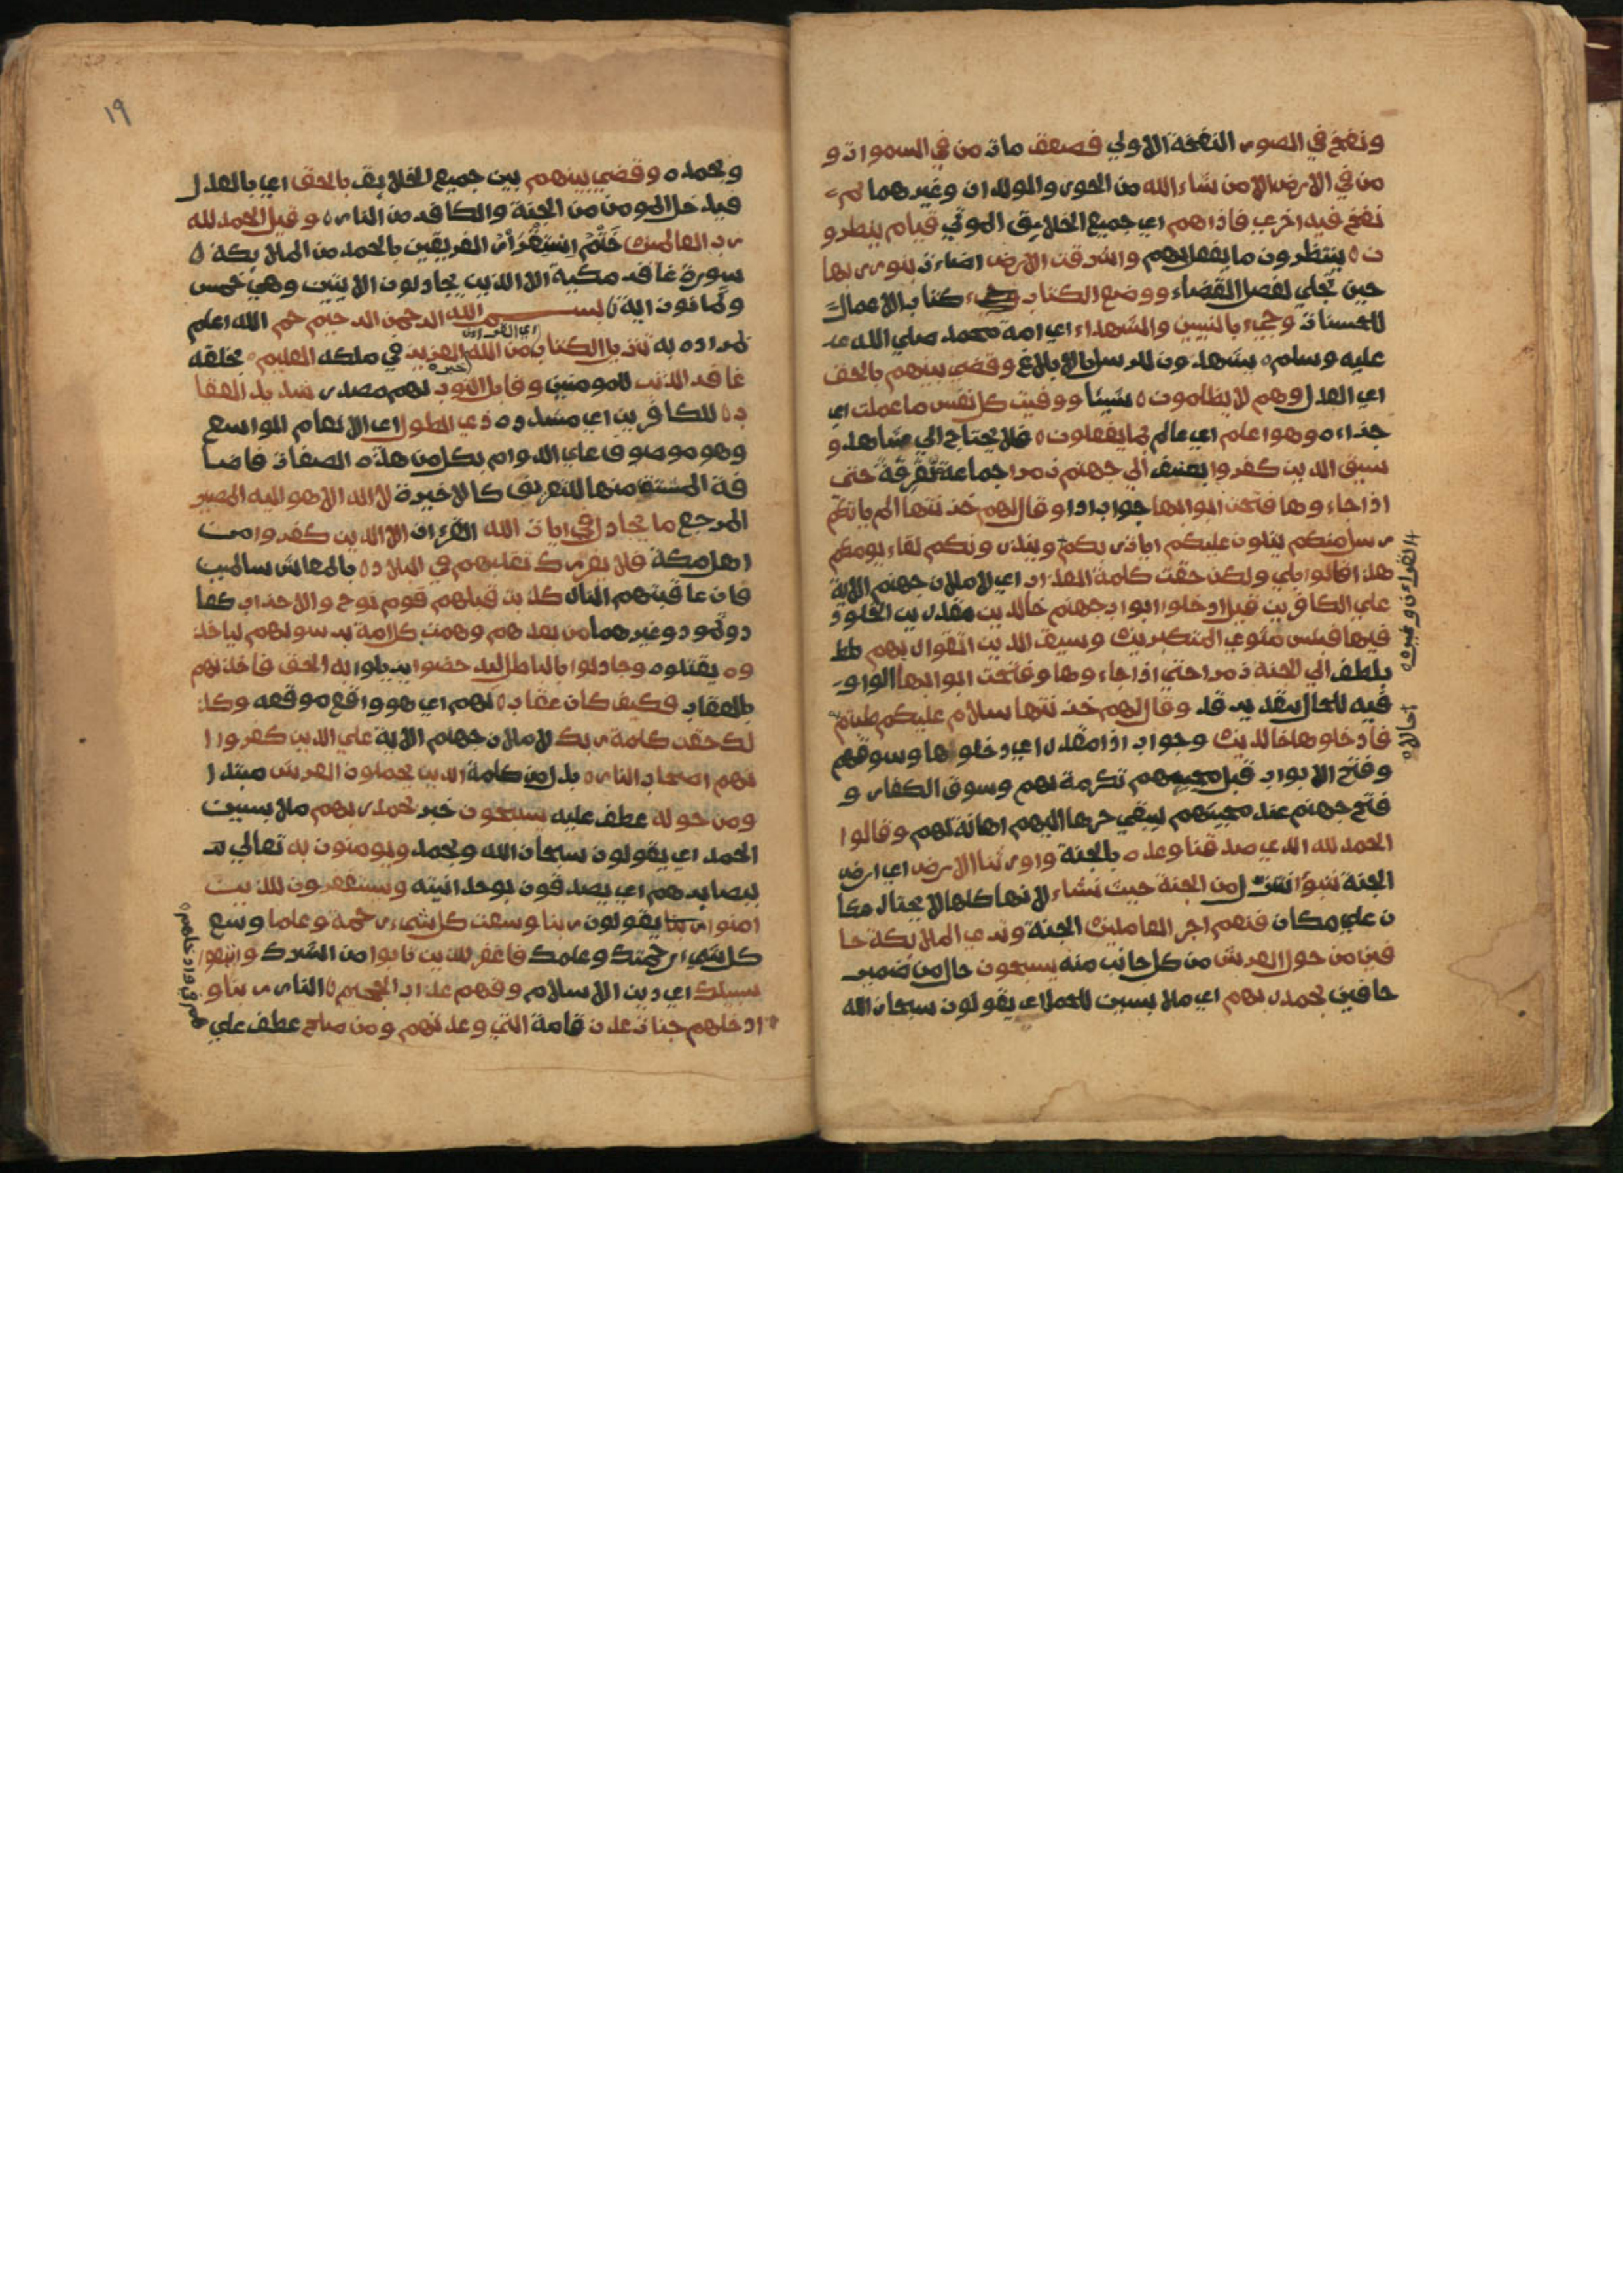 ونفخ في الصور النفخة الاولي فصعف مات من في السموات و
من في الارض الا من شاء الله من الحور والولدان وغيرهما ثم
نفخ فيه اخري فاذاهم اي جميع الخلايق الموتي قيام ينظرو
ن ينتظرون ما يفعل بهم واشرقت الارض اضاءت بنور ربها
حين تجلي لفصل القضاء ووضع الكتاب كتاب الاعمال
للحسنات وجيء بالنبيين والشهداء اي امة محمد صلي الله
عليه وسلم يشهدون للرسل بالابلاغ وقضي بينهم بالحق
اي العدل وهم لا يظلمون شيئا ووفيت كل نفس ما عملت اي
جذاءه وهو اعلم اي عالم بما يفعلون فلا يحتاج الي شاهد و
سيق الذين كفروا بعنف الي جهنم زمرا جماعة تفرقة حتى
اذا جاءوها فتحت ابوابها جواب اذا وقال لهم خزنتها الم ياتكم
رسل منكم يتلون عليكم ايات ربكم وينذرونكم لقاء يومكم
هذا قالوا بلي ولكن حقت كلمة العذاب اي لاملان جهنم الاية
علي الكافرين قيل ادخلوا ابواب جهنم خالدين مقدرين الخلود
فيها فبيس مثوي المتكبرين وسيق الذين اتقوا ربهم
بلطف الي الجنة زمرا حتي اذا جاءوها وفتحت ابوابها الواو
فيه للحال بتقدير قد وقال لهم خزنتها سلام عليكم طبتم
فادخلوها خالدين وجواب اذا مقدر اي دخلوها وسوقهم
وفتح الابواب قبل مجيهم تكرمة لهم وسوق الكفار و
فتح جهنم عند مجيئهم ليبقي حرها اليهم اهانة لهم وقالوا
الحمد لله الذي صدقنا وعده بالجنة واورثنا الارض اي ارض
الجنة نتبوا ننزل من الجنة حيث نشاء لانها كلها لا يختار مكا
ن علي مكان فنعم اجر العاملين الجنة وتري الملايكة حا
فين من حول العرش من كل جانب منه يسبحون حال من ضمير
حافين بحمد ربهم اي ملابسين للحمد اي يقولون سبحان الله
القرءان وغيره
حال
١٩
وبحمده وقضي بينهم بين جميع الخلايق بالحق اي بالعدل
فيدخل المومن من الجنة والكافر من النار وقيل الحمد لله
رب العالمين ختم استقرار الفريقين بالحمد من الملايكة
سورة غافر مكية الا الذين يجادلون الايتين وهي خمس
وثمانون اية بسم الله الرحمن الرحيم حم الله اعلم
بمراده به تنزيل الكتاب من الله العزيز في ملكه العليم بخلقه
اي القرءان
خبره
غافر الذنب للمومنين وقابل التوب لهم مصدر شديد العقا
ب للكافرين اي مشدده ذي الطول اي الانعام الواسع
وهو موصوف علي الدوام بكل من هذه الصفات فاضا
فة المشتق منها للتعريف كالاخيرة لا اله الا هو اليه المصير
المرجع ما يجادل في ايات الله القرءان الا الذين كفروا من
اهل مكة فلا يغررك تقلبهم في البلاد بالمعاش سالمين
فان عاقبتهم النار كذبت قبلهم قوم نوح والاحذاب كعا
د وثمود وغيرهما من بعدهم وهمت كل امة برسولهم لياخذ
وه يقتلوه وجادلوا بالباطل ليدحضوا يذيلوا به الحق فاخذتهم
بالعقاب فكيف كان عقاب لهم اي هو واقع موقعه وكذ
لك حقت كلمة ربك لاملان جهنم الاية علي الذين كفروا ا
نهم اصحاب النار بدل من كلمة الذين يحملون العرش مبتدا
ومن حوله عطف عليه يسبحون خبر بحمد ربهم ملابسين
الحمد اي يقولون سبحان الله وبحمد ويومنون به تعالي
ببصايرهم اي يصدقون بوحدانيته ويستغفرون للذين
امنوا ربنا يقولون ربنا وسعت كل شيء رحمة وعلما وسع
كل شيء رحمتك وعلمك فاغفر للذين تابوا من الشرك واتبعوا
سبيلك اي دين الاسلام وقهم عذاب الجحيم النار ربنا و
ادخلهم جنات عدن قامة التي وعدتهم ومن صلح عطف علي
هم في وادخلهم